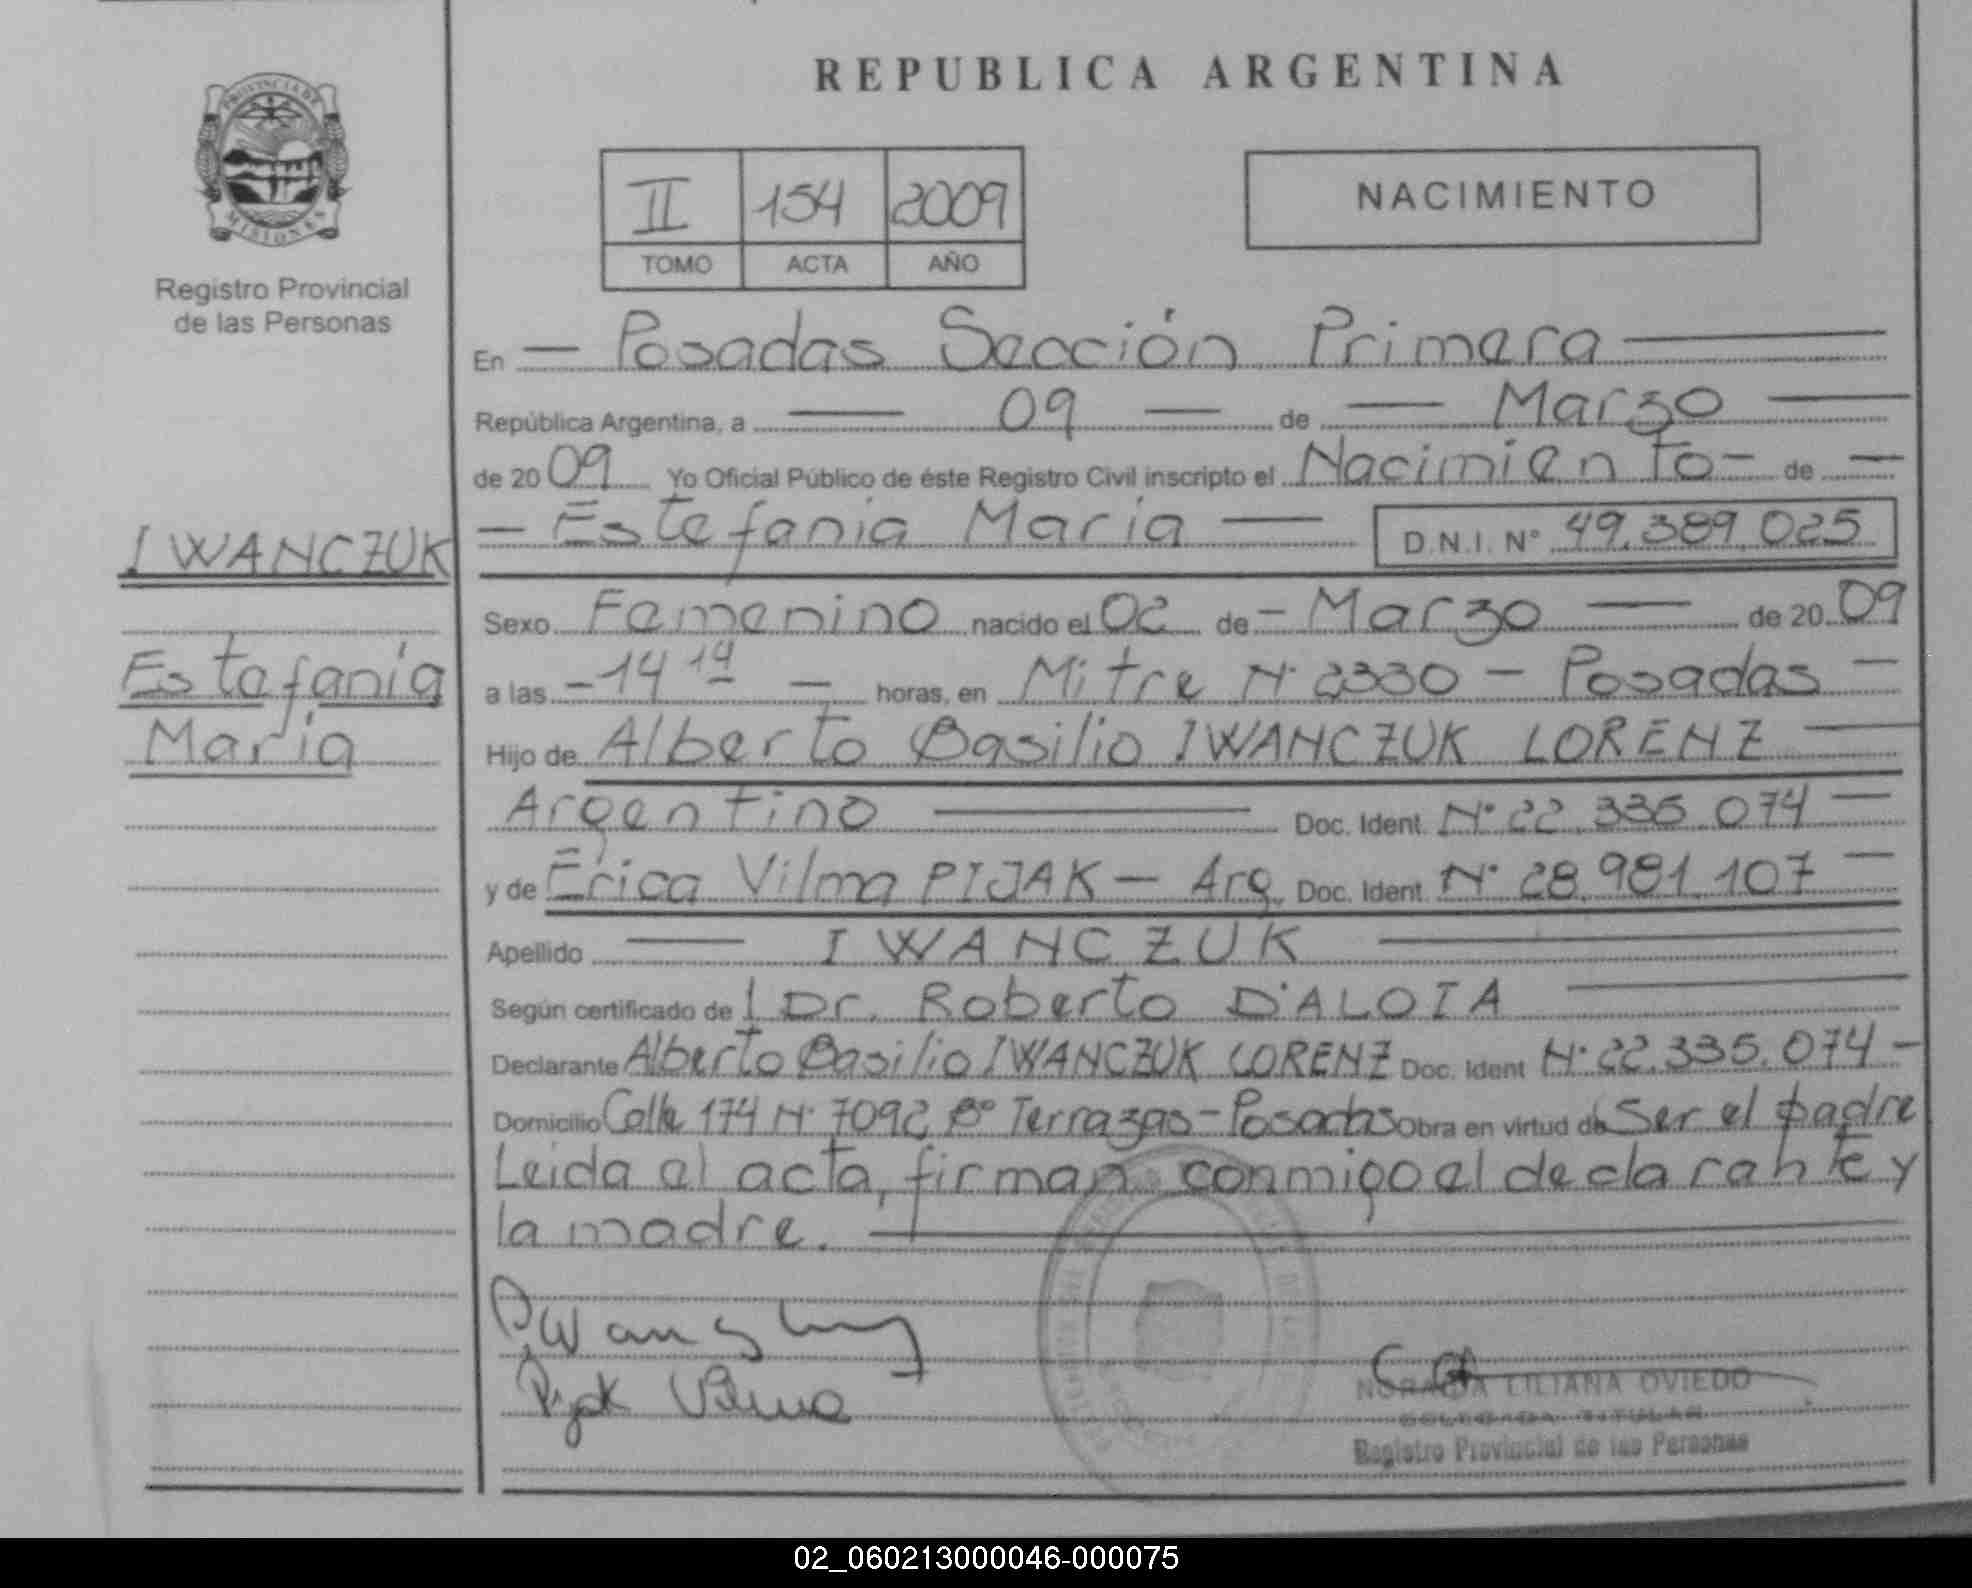 REPUBLICA ARGENTINA
PROVINCIA DE
MISIONES
Registro Provincial
de las Personas
II 154 2009
TOMO ACTA AÑO
NACIMIENTO
En — Posadas Sección Primera —
República Argentina, a — 09 — de — Marzo —
de 2009 Yo Oficial Público de éste Registro Civil inscripto el Nacimiento - de —
IWANCZUK
Estefanía
María
— Estefanía María — D.N.I. N° 49.389.025
Sexo Femenino nacido el 02 de - Marzo — de 2009
a las - 14 14 — horas, en Mitre N° 2330 - Posadas —
Hijo de Alberto Basilio IWANCZUK LORENZ —
Argentino — Doc. Ident. N° 22.335.074 —
y de Erica Vilma PIJAK — Arg. Doc. Ident. N° 28.981.107 —
Apellido — IWANCZUK —
Según certificado de Dr. Roberto D'ALOIA —
Declarante Alberto Basilio IWANCZUK LORENZ Doc. Ident N° 22.335.074 -
Domicilio Calle 174 N° 7092 B° Terrazas - Posadas Obra en virtud de Ser el padre
Leida el acta, firman conmigo el declarante y
la madre. —
Pijak Vilma
LILIANA OVIEDO
DELEGADA TITULAR
Registro Provincial de las Personas
02_060213000046-000075